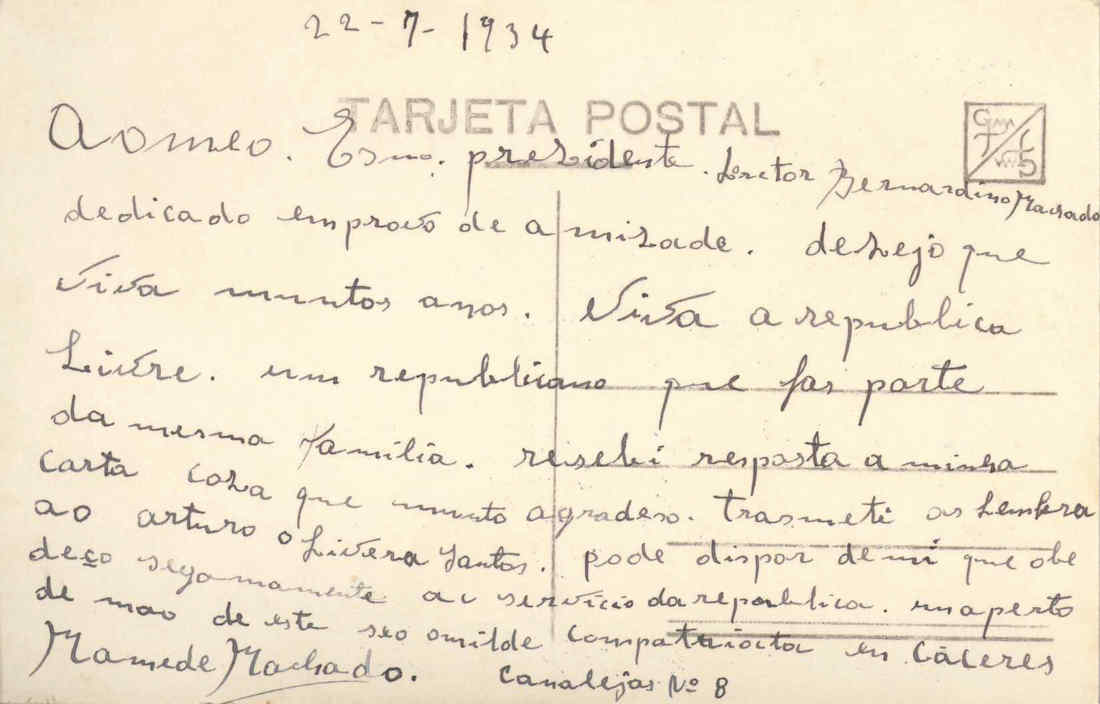 22-7-1934
TARJETA POSTAL
Ao meo. Esmo. prezidente. Doctor Bernardino Machado
dedicado em provó de amizade. dezejo que
viva muntos anos. Viva a republica
Livre. um republicano que fas parte
da mesma família. resebi resposta a minha
carta coza que munto agradeso. trasmeti as Lembra
ao arturo oLivera santos. pode dispor de mi que obe
deço segamamente ao servicio da republica. un aperto
de mao de este seo omilde compatriota en Cáceres
Mamede Machado. Canalejas Nº 8